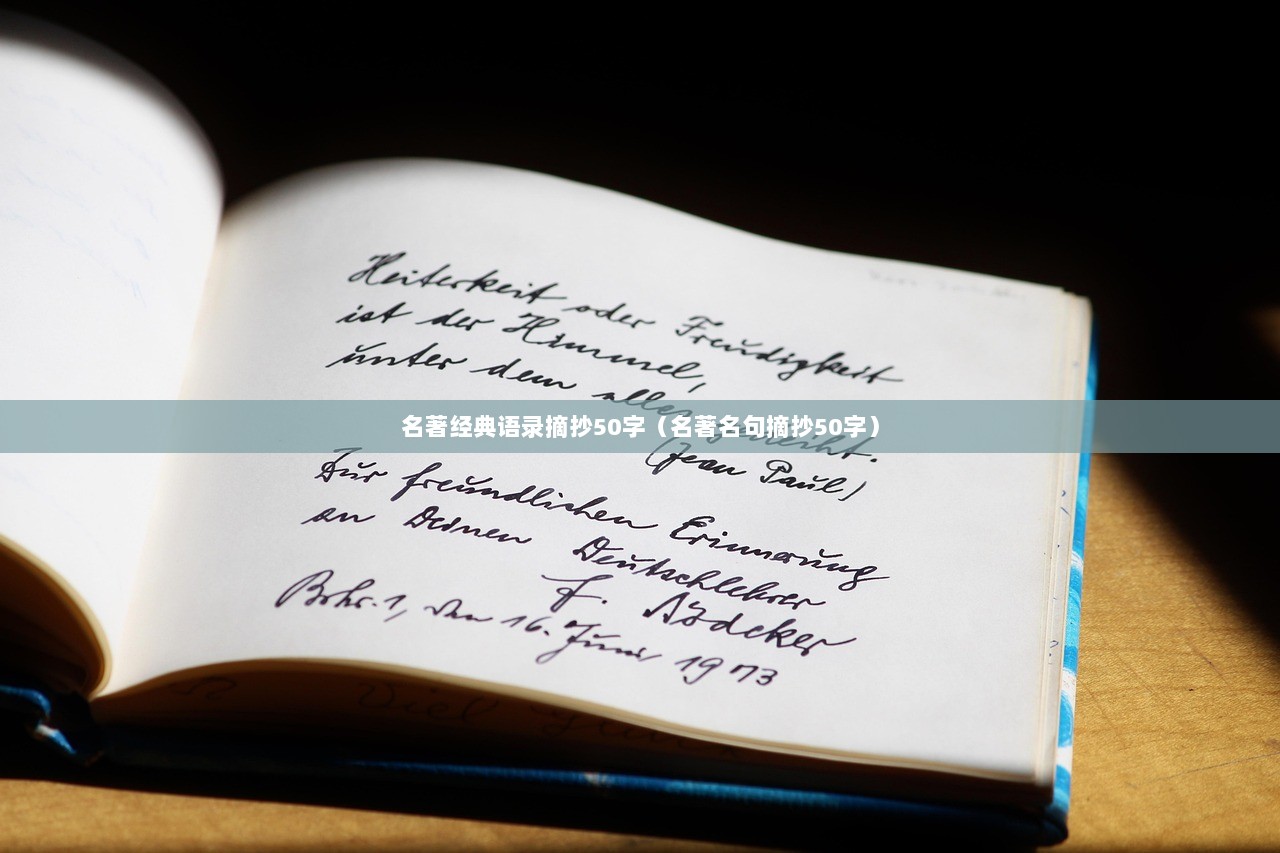 Heiterkeit oder Freudigkeit
ist der Himmel,
unter dem alles gedeiht.
(Jean Paul)
名著经典语录摘抄50字（名著名句摘抄50字）
Zur freundlichen Erinnerung
an Deinen Deutschlehrer
F.
den 16. Juni 1973
Viel